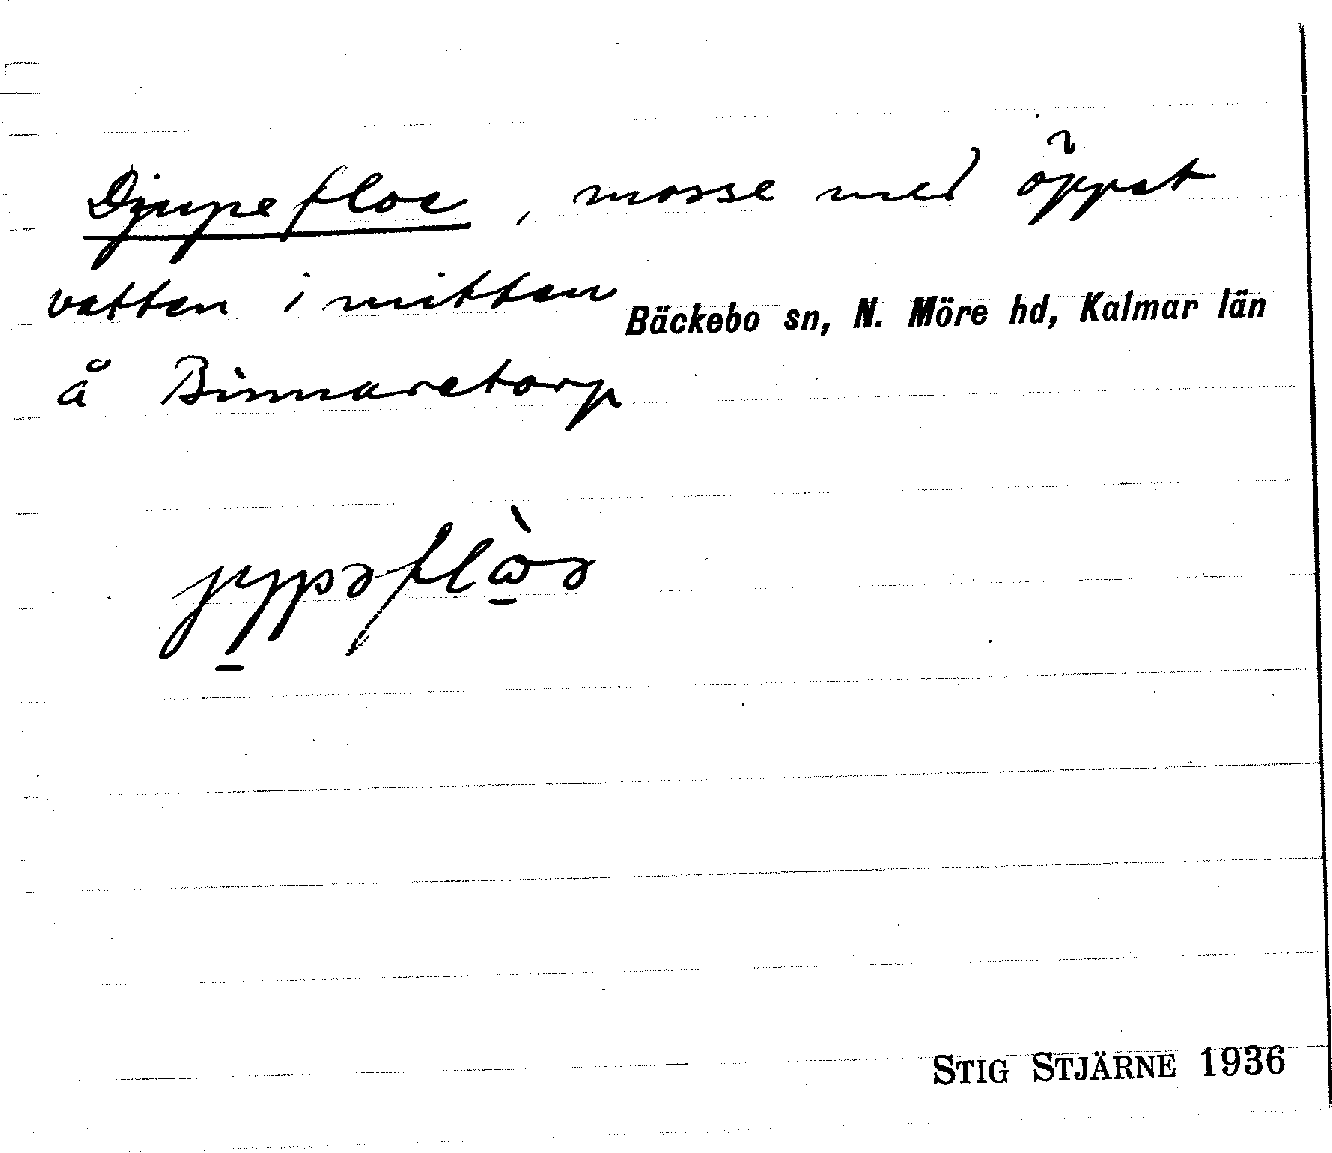 Djupefloe, mosse med öppet
vatten i mitten
Bäckebo sn, N. Möre hd, Kalmar län
å Binnaretorp
STIG STJÄRNE 1936